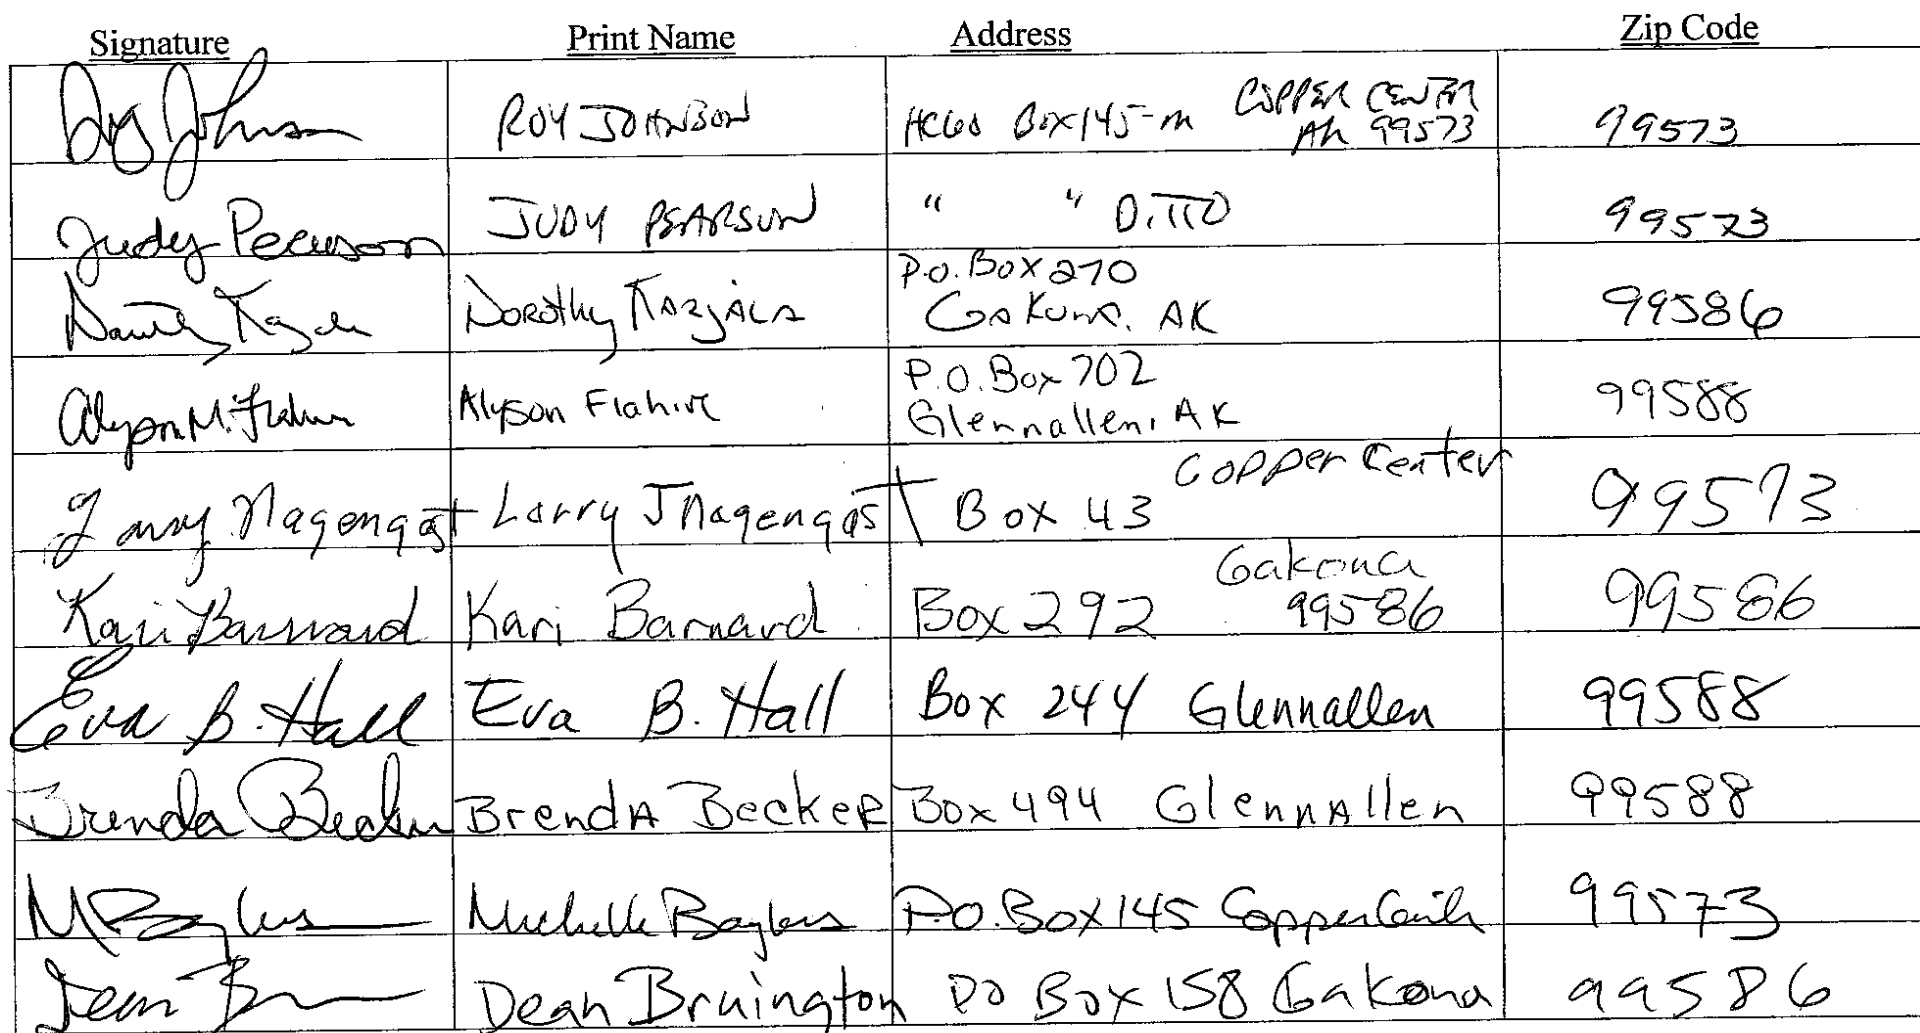 Signature Print Name Address Zip Code
Roy Johnson ROY JOHNSON HC60 Box 145-M COPPER CENTER AK 99573 99573
Judy Pearson JUDY PEARSON " " DITTO 99573
Dorothy P.O. Box 270 Gakona, AK 99586
Alyson M. Flahive Alyson Flahive P.O. Box 702 Glennallen, AK 99588
Larry Nagengast Larry J Nagengast Box 43 Copper Center 99573
Kari Barnard Kari Barnard Box 292 Gakona 99586 99586
Eva B. Hall Eva B. Hall Box 244 Glennallen 99588
Brenda Becker BrendA BeckeR Box 494 GlennAllen 99588
Michelle P.O. Box 145 Copper Center 99573
Dean Dean Bruington PO Box 158 Gakona 99586